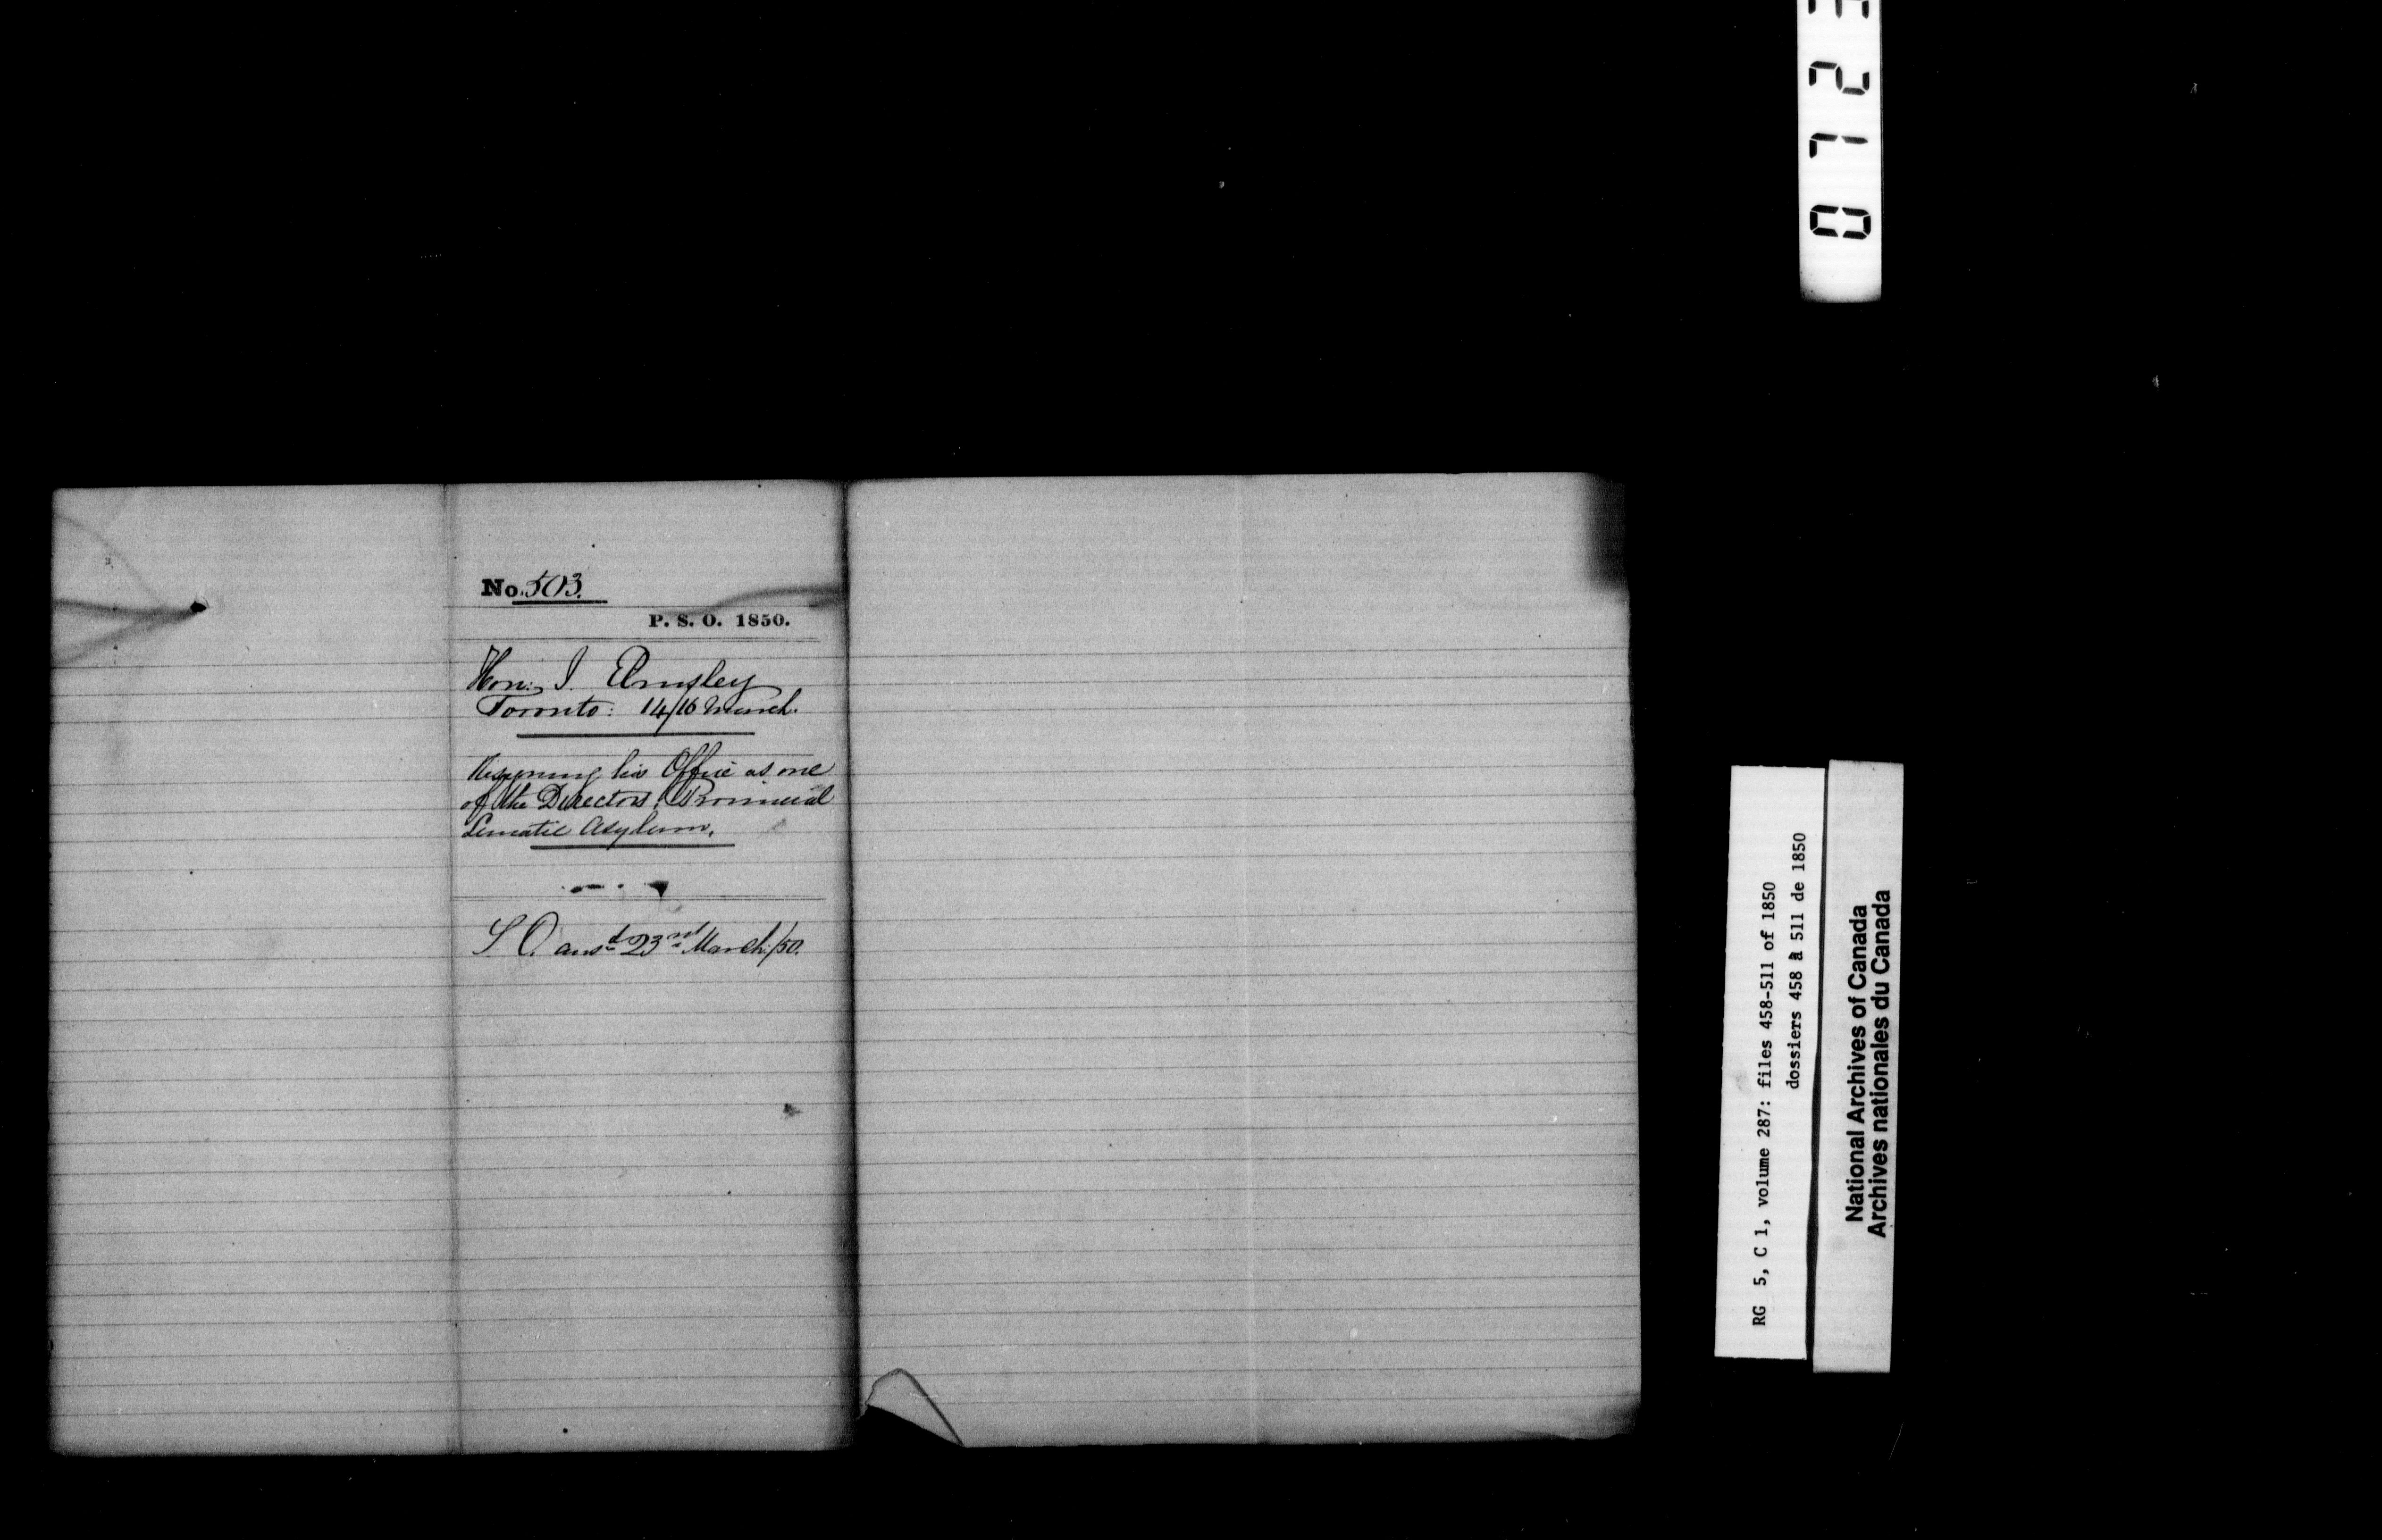 No. 503.
P. S. O. 1850.
Hon: J. Elmsley
Toronto: 14/16 March.
Resigning his Office as one
of the Directors, Provincial
Lunatic Asylum.
S O. ansd 23rd March/50.
0723
RG 5, C 1, volume 287: files 458-511 of 1850
dossiers 458 à 511 de 1850
National Archives of Canada
Archives nationales du Canada